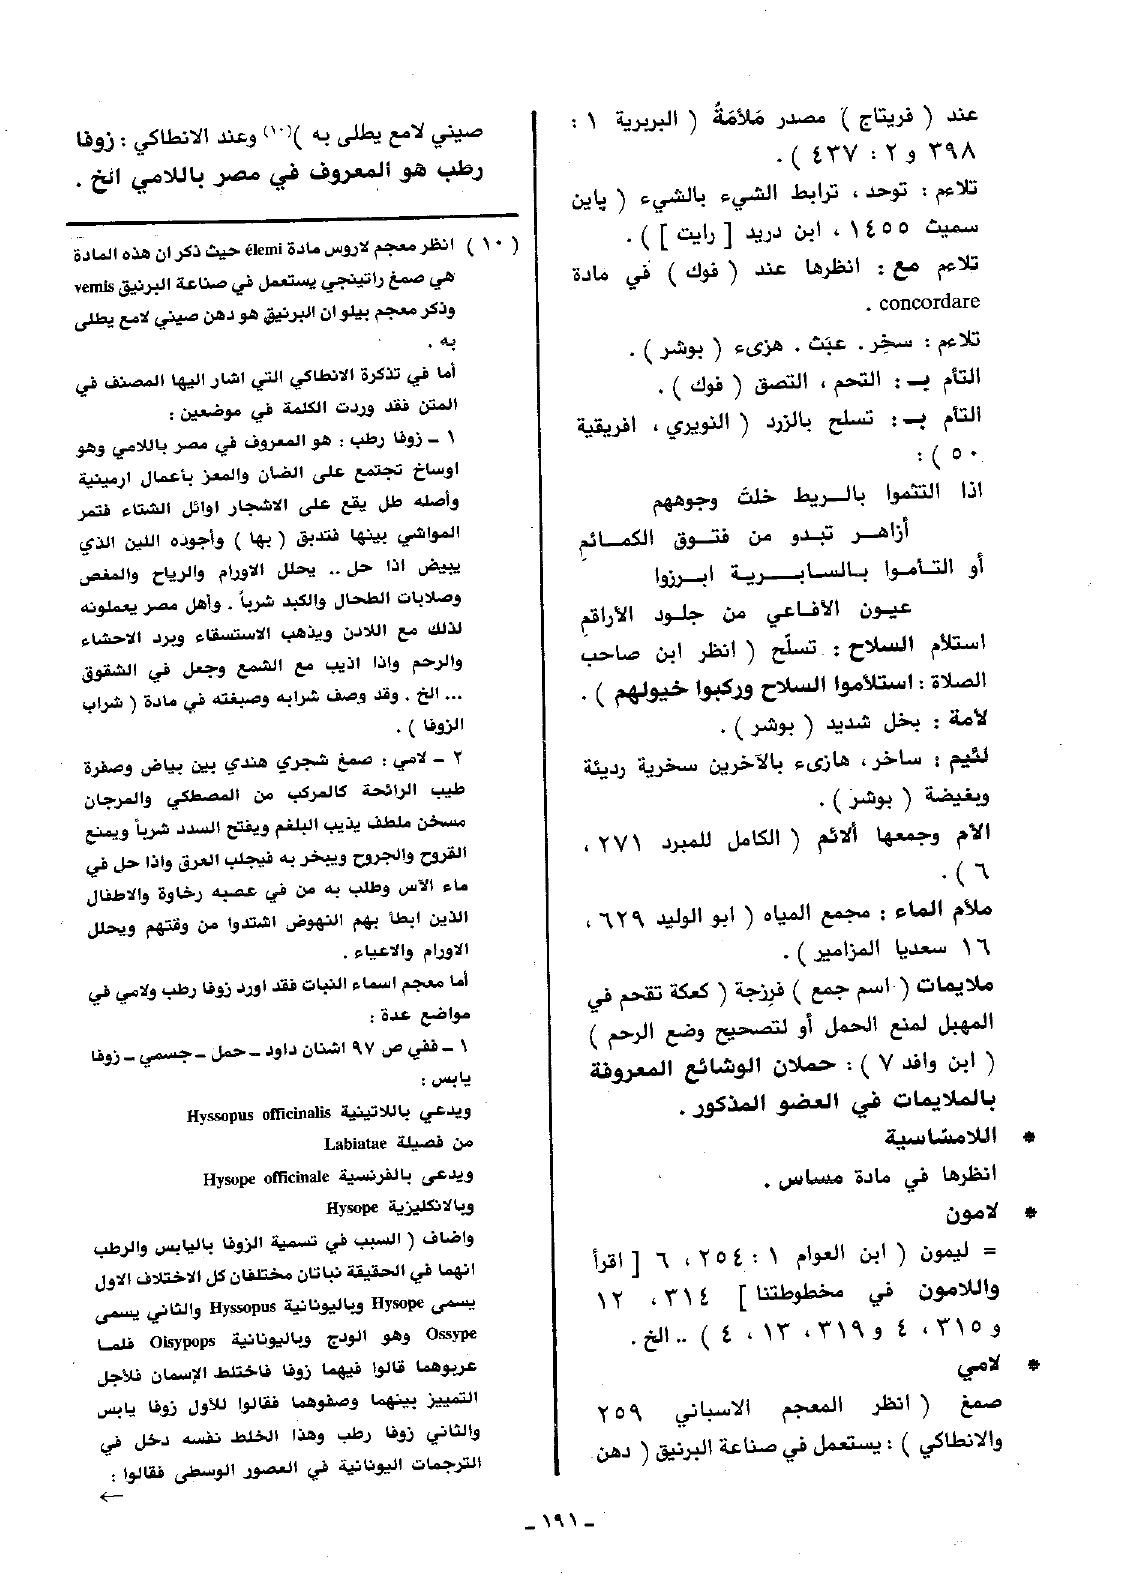 عند ( فريتاج ) مصدر مَلأمَةُ ( البربرية ١ :
٣٩٨ و ٢ : ٤٣٧ ) .
تلاءم : توحد ، ترابط الشيء بالشيء ( پاين
سميث ١٤٥٥ ، ابن دريد [ رايت ] ) .
تلاءم مع : انظرها عند ( فوك ) في مادة
concordare .
تلاءم : سخِر . عبَث . هزىء ( بوشر ) .
التأم بـ : التحم ، التصق ( فوك ) .
التأم بـ : تسلح بالزرد ( النويري ، افريقية
٥٠ ) :
اذا التثموا بالـريط خلتَ وجوههم
أزاهـر تبدو من فتـوق الكمـائمِ
أو التـأمـوا بـالسابـريـة ابـرزوا
عيـون الأفـاعي من جلـود الأراقمِ
استلأم السلاح : تسلّح ( انظر ابن صاحب
الصلاة : استلاموا السلاح وركبوا خيولهم ) .
لأمة : بخل شديد ( بوشر ) .
لئيم : ساخر ، هازىء بالآخرين سخرية رديئة
وبغيضة ( بوشر ) .
الأم وجمعها ألائم ( الكامل للمبرد ٢٧١ ،
٦ ) .
ملأم الماء : مجمع المياه ( ابو الوليد ٦٢٩ ،
١٦ سعديا المزامير ) .
ملايمات ( اسم جمع ) فَرِزجة ( كعكة تقحم في
المهبل لمنع الحمل أو لتصحيح وضع الرحم )
( ابن وافد ٧ ) : حملان الوشائع المعروفة
بالملايمات في العضو المذكور .
* اللامشاسية
انظرها في مادة مساس .
* لامون
= ليمون ( ابن العوام ١ : ٢٥٤ ، ٦ [ اقرأ
واللامون في مخطوطتنا ] ٣١٤ ، ١٢
و ٣١٥ ، ٤ و ٣١٩ ، ١٣ ، ٤ ) .. الخ .
* لامي
صمغ ( انظر المعجم الاسباني ٢٥٩
والانطاكي ) : يستعمل في صناعة البرنيق ( دهن
صيني لامع يطلى به )(١٠) وعند الانطاكي : زوفا
رطب هو المعروف في مصر باللامي الخ .
( ١٠ ) انظر معجم لاروس مادة élemi حيث ذكر ان هذه المادة
هي صمغ راتينجي يستعمل في صناعة البرنيق vernis
وذكر معجم بيلو ان البرنيق هو دهن صيني لامع يطلى
به .
أما في تذكرة الانطاكي التي اشار اليها المصنف في
المتن فقد وردت الكلمة في موضعين :
١ - زوفا رطب : هو المعروف في مصر باللامي وهو
اوساخ تجتمع على الضان والمعز بأعمال ارمينية
وأصله طل يقع على الاشجار اوائل الشتاء فتمر
المواشي بينها فتدبق ( بها ) وأجوده اللين الذي
يبيض اذا حل .. يحلل الاورام والرياح والمغص
وصلابات الطحال والكبد شرباً . وأهل مصر يعملونه
لذلك مع اللادن ويذهب الاستسقاء وبرد الاحشاء
والرحم واذا اذيب مع الشمع وجعل في الشقوق
... الخ . وقد وصف شرابه وصبغته في مادة ( شراب
الزوفا ) .
٢ - لامي : صمغ شجري هندي بين بياض وصفرة
طيب الرائحة كالمركب من المصطكي والمرجان
مسخن ملطف يذيب البلغم ويفتح السدد شرباً ويمنع
القروح والجروح ويبخر به فيجلب العرق واذا حل في
ماء الآس وطلب به من في عصبه رخاوة والاطفال
الذين ابطأ بهم النهوض اشتدوا من وقتهم ويحلل
الاورام والاعياء .
أما معجم اسماء النبات فقد اورد زوفا رطب ولامي في
مواضع عدة :
١ - ففي ص ٩٧ اشنان داود - حمل - جسمي - زوفا
يابس :
ويدعى باللاتينية Hyssopus officinalis
من فصيلة Labiatae
ويدعى بالفرنسية Hysope officinale
وبالانكليزية Hysope
واضاف ( السبب في تسمية الزوفا باليابس والرطب
انهما في الحقيقة نباتان مختلفان كل الاختلاف الاول
يسمى Hysope وباليونانية Hyssopus والثاني يسمى
Ossype وهو الودج وباليونانية Oisypops فلمـا
عربوهما قالوا فيهما زوفا فاختلط الإسمان فلأجل
التمييز بينهما وصفوهما فقالوا للأول زوفا يابس
والثاني زوفا رطب وهذا الخلط نفسه دخل في
الترجمات اليونانية في العصور الوسطى فقالوا :
←
- ١٩١ -